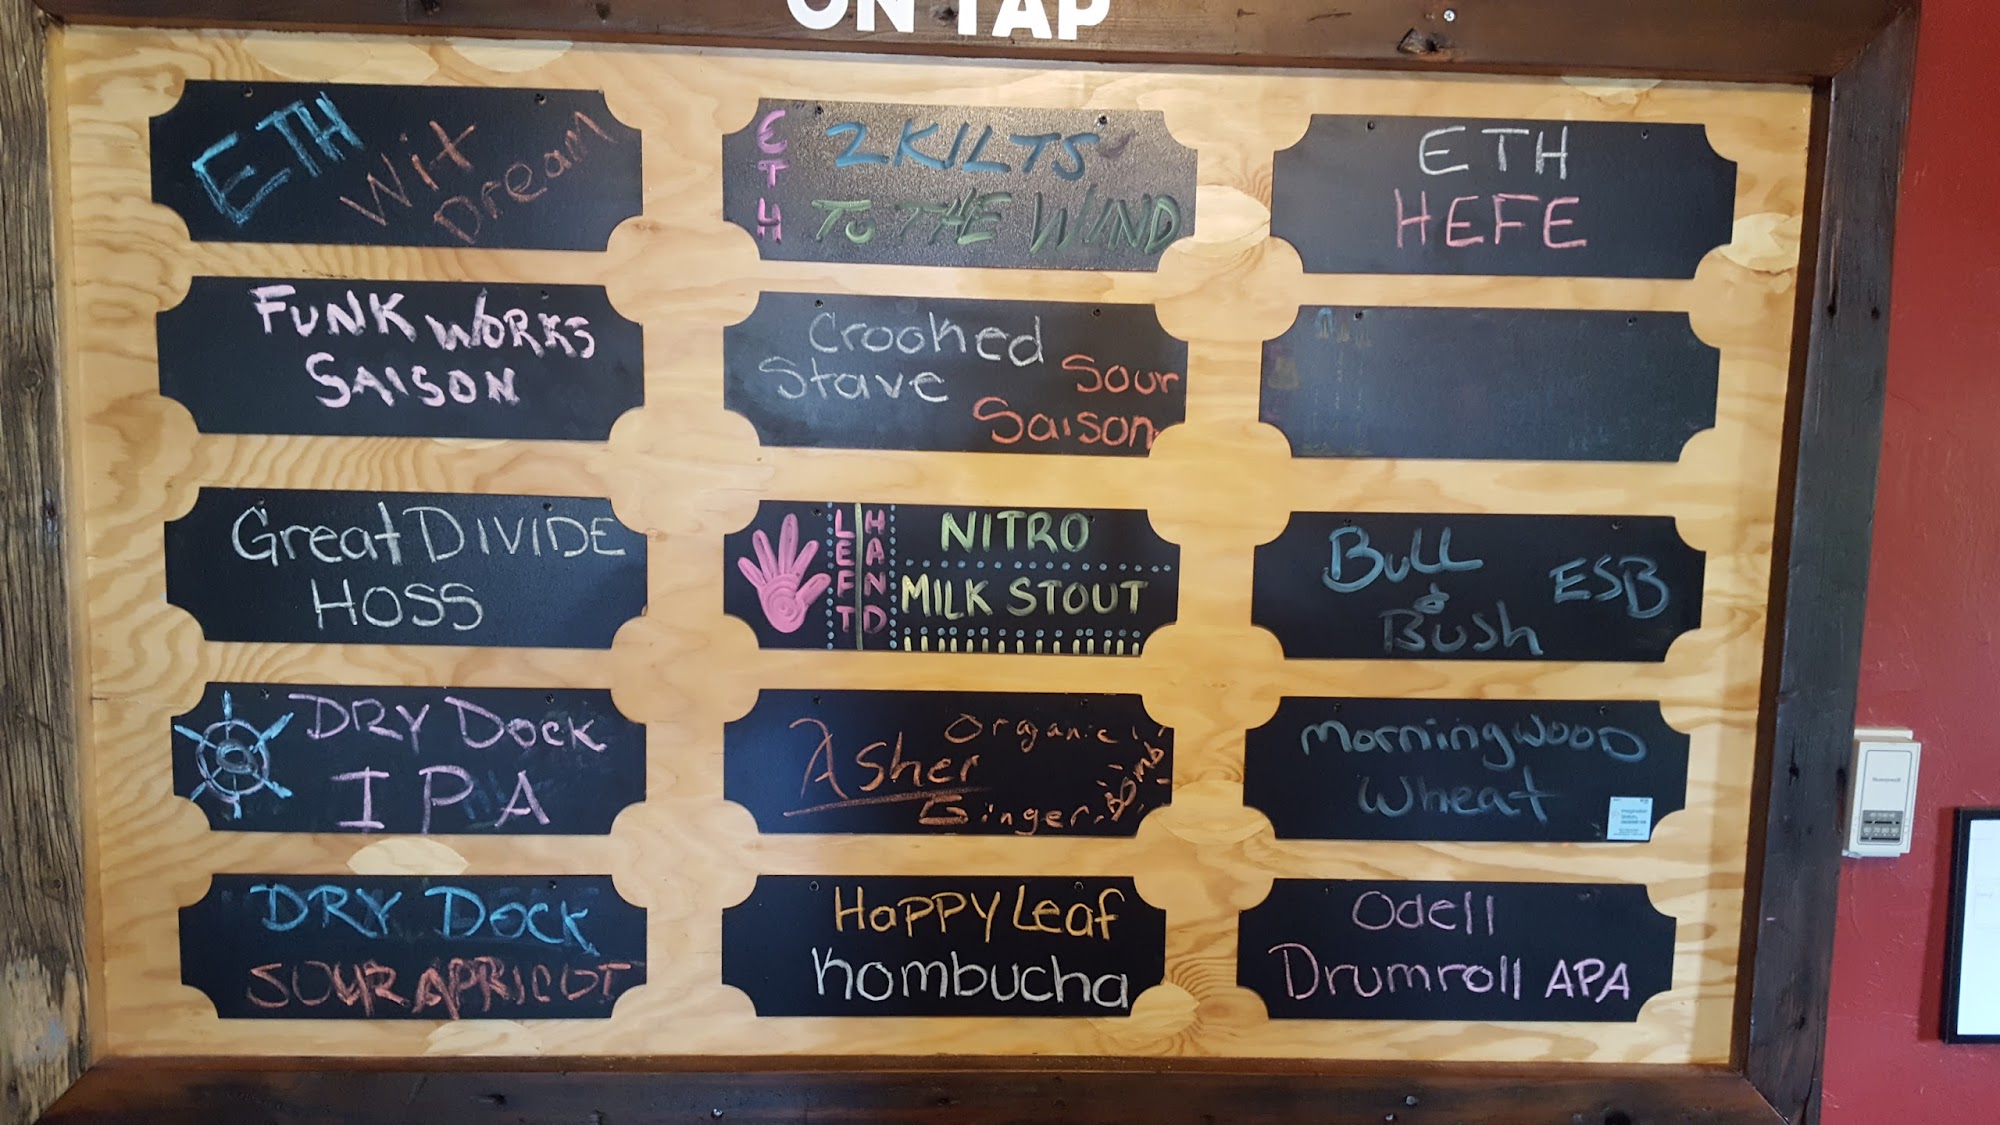 ON TAP
ETH
Wit
Dream
ETH
2 KILTS
TO THE WIND
ETH
HEFE
FUNKWORKS
SAISON
Crooked
Stave
Sour
Saison
Great DIVIDE
HOSS
LEFT
HAND
NITRO
MILK STOUT
Bull
&
Bush
ESB
DRY DOCK
IPA
Asher
Organic
Ginger
Bomb
MorningwooD
Wheat
DRY DOCK
SOUR APRICOT
HAPPY Leaf
Kombucha
Odell
Drumroll APA
Honeywell